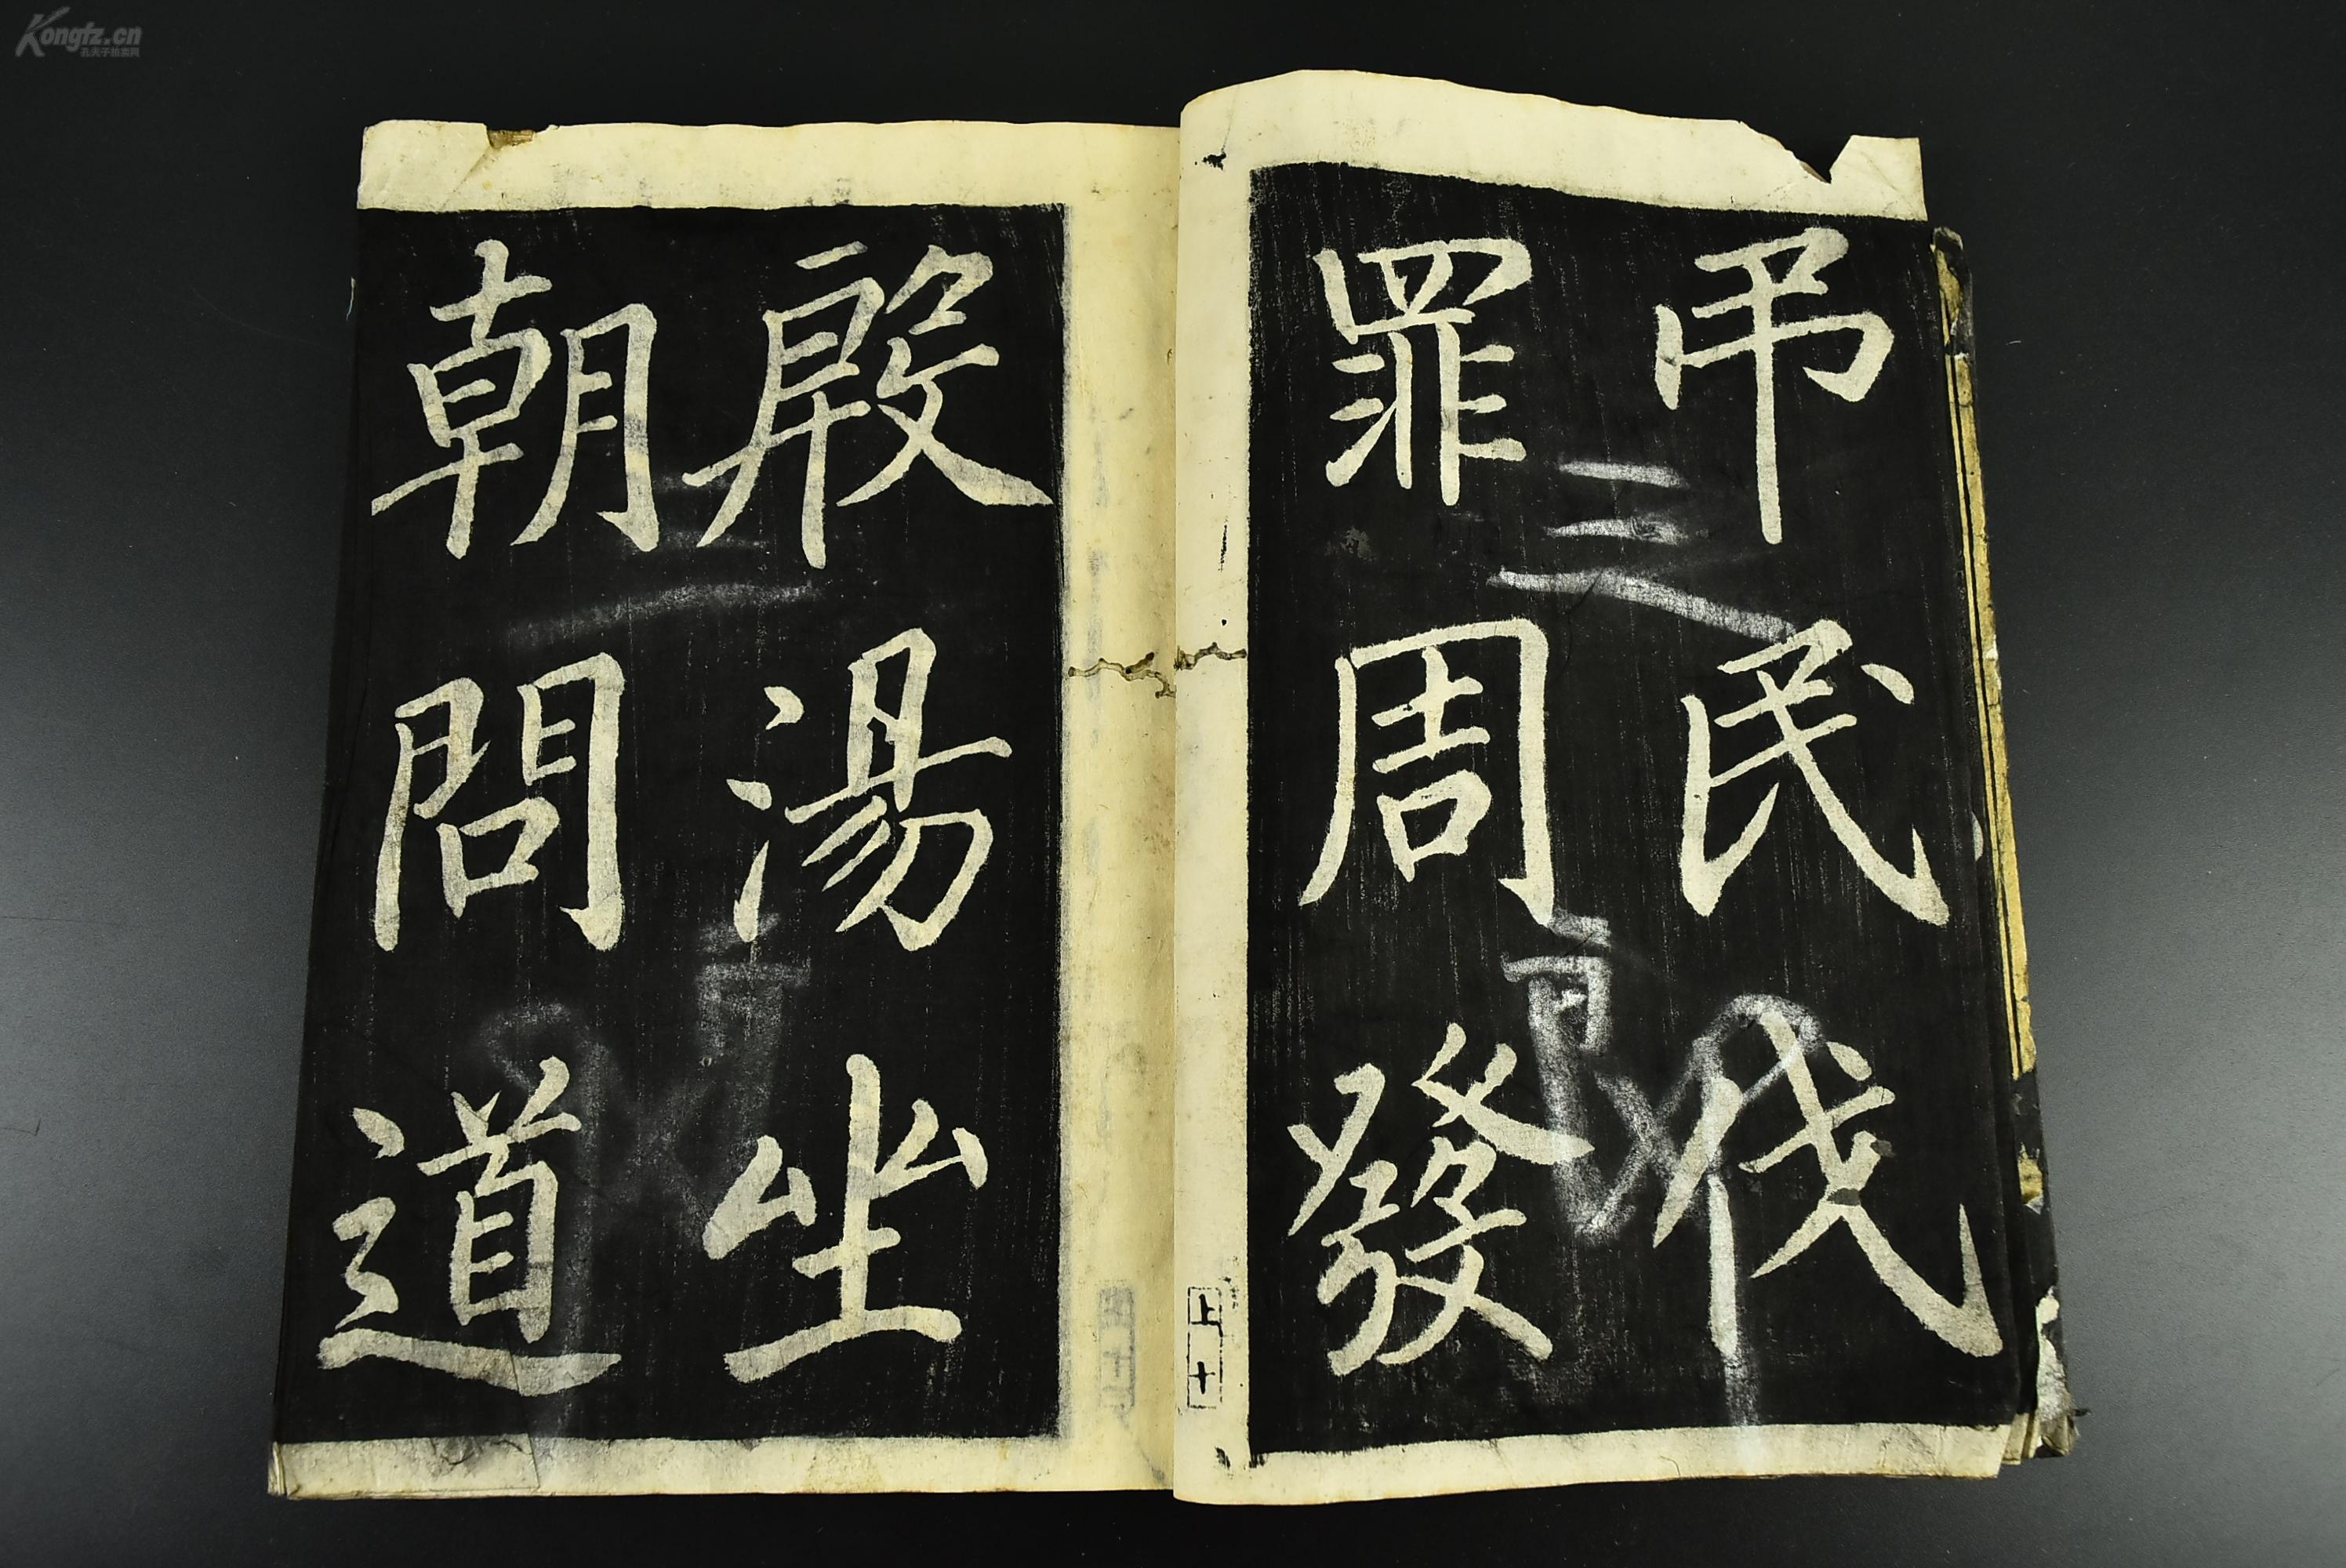 弔民伐
罪周發
殷湯坐
朝問道
上十
Kongfz.cn
孔夫子拍卖网